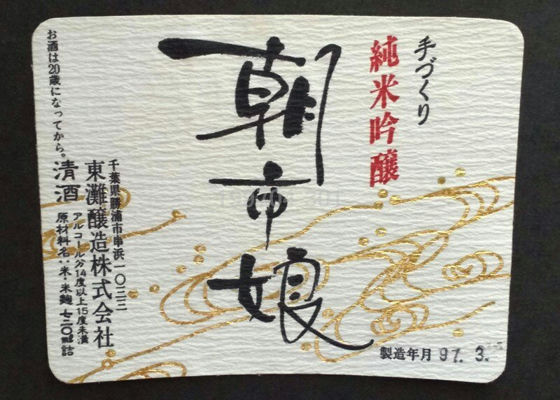 手づくり
純米吟醸
朝市娘
製造年月 97. 3.
千葉県勝浦市串浜一〇三三
東灘醸造株式会社
清酒
アルコール分14度以上15度未満
原材料名:米・米麹 七二〇ml詰
お酒は20歳になってから。